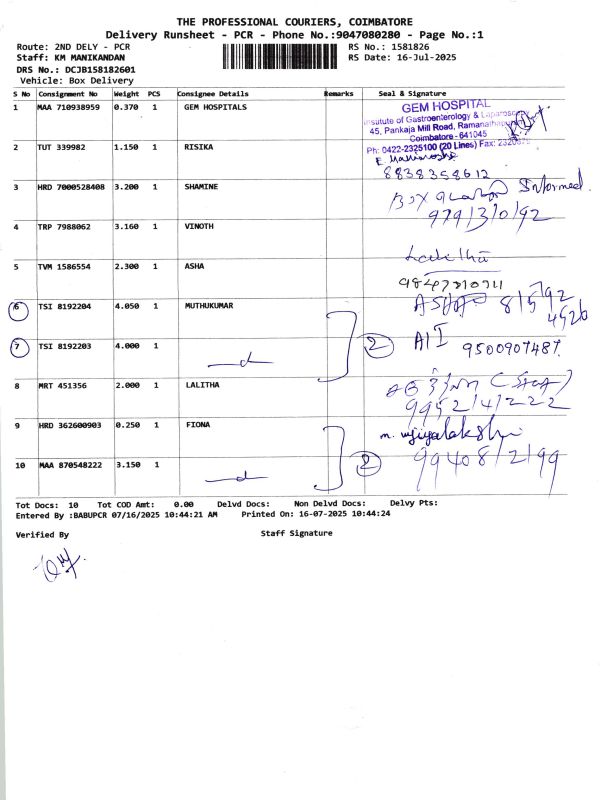 THE PROFESSIONAL COURIERS, COIMBATORE
Delivery Runsheet - PCR - Phone No.:9047080280 - Page No.:1
Route: 2ND DELY - PCR
RS No.: 1581826
Staff: KM MANIKANDAN
RS Date: 16-Jul-2025
DRS No.: DCJB158182601
Vehicle: Box Delivery
S No Consignment No Weight PCS Consignee Details Remarks Seal & Signature
1 MAA 710938959 0.370 1 GEM HOSPITALS
GEM HOSPITAL
Institute of Gastroenterology & Laparoscopy
45, Pankaja Mill Road, Ramanathapuram
Coimbatore - 641045
Ph: 0422-2325100 (20 Lines) Fax: 2320879
2 TUT 339982 1.150 1 RISIKA
8838358612
3 HRD 7000528408 3.200 1 SHAMINE
Informed
979/3/0/92
4 TRP 7988062 3.160 1 VINOTH
Lalitha
5 TVM 1586554 2.300 1 ASHA
9847310711
6 TSI 8192204 4.050 1 MUTHUKUMAR
7 TSI 8192203 4.000 1 2
9500907487
8 MRT 451356 2.000 1 LALITHA
9952/4/222
9 HRD 362600903 0.250 1 FIONA
m. vijiyalakshmi
10 MAA 870548222 3.150 1 2
99408/2/99
Tot Docs: 10 Tot COD Amt: 0.00 Delvd Docs: Non Delvd Docs: Delvy Pts:
Entered By :BABUPCR 07/16/2025 10:44:21 AM Printed On: 16-07-2025 10:44:24
Verified By Staff Signature